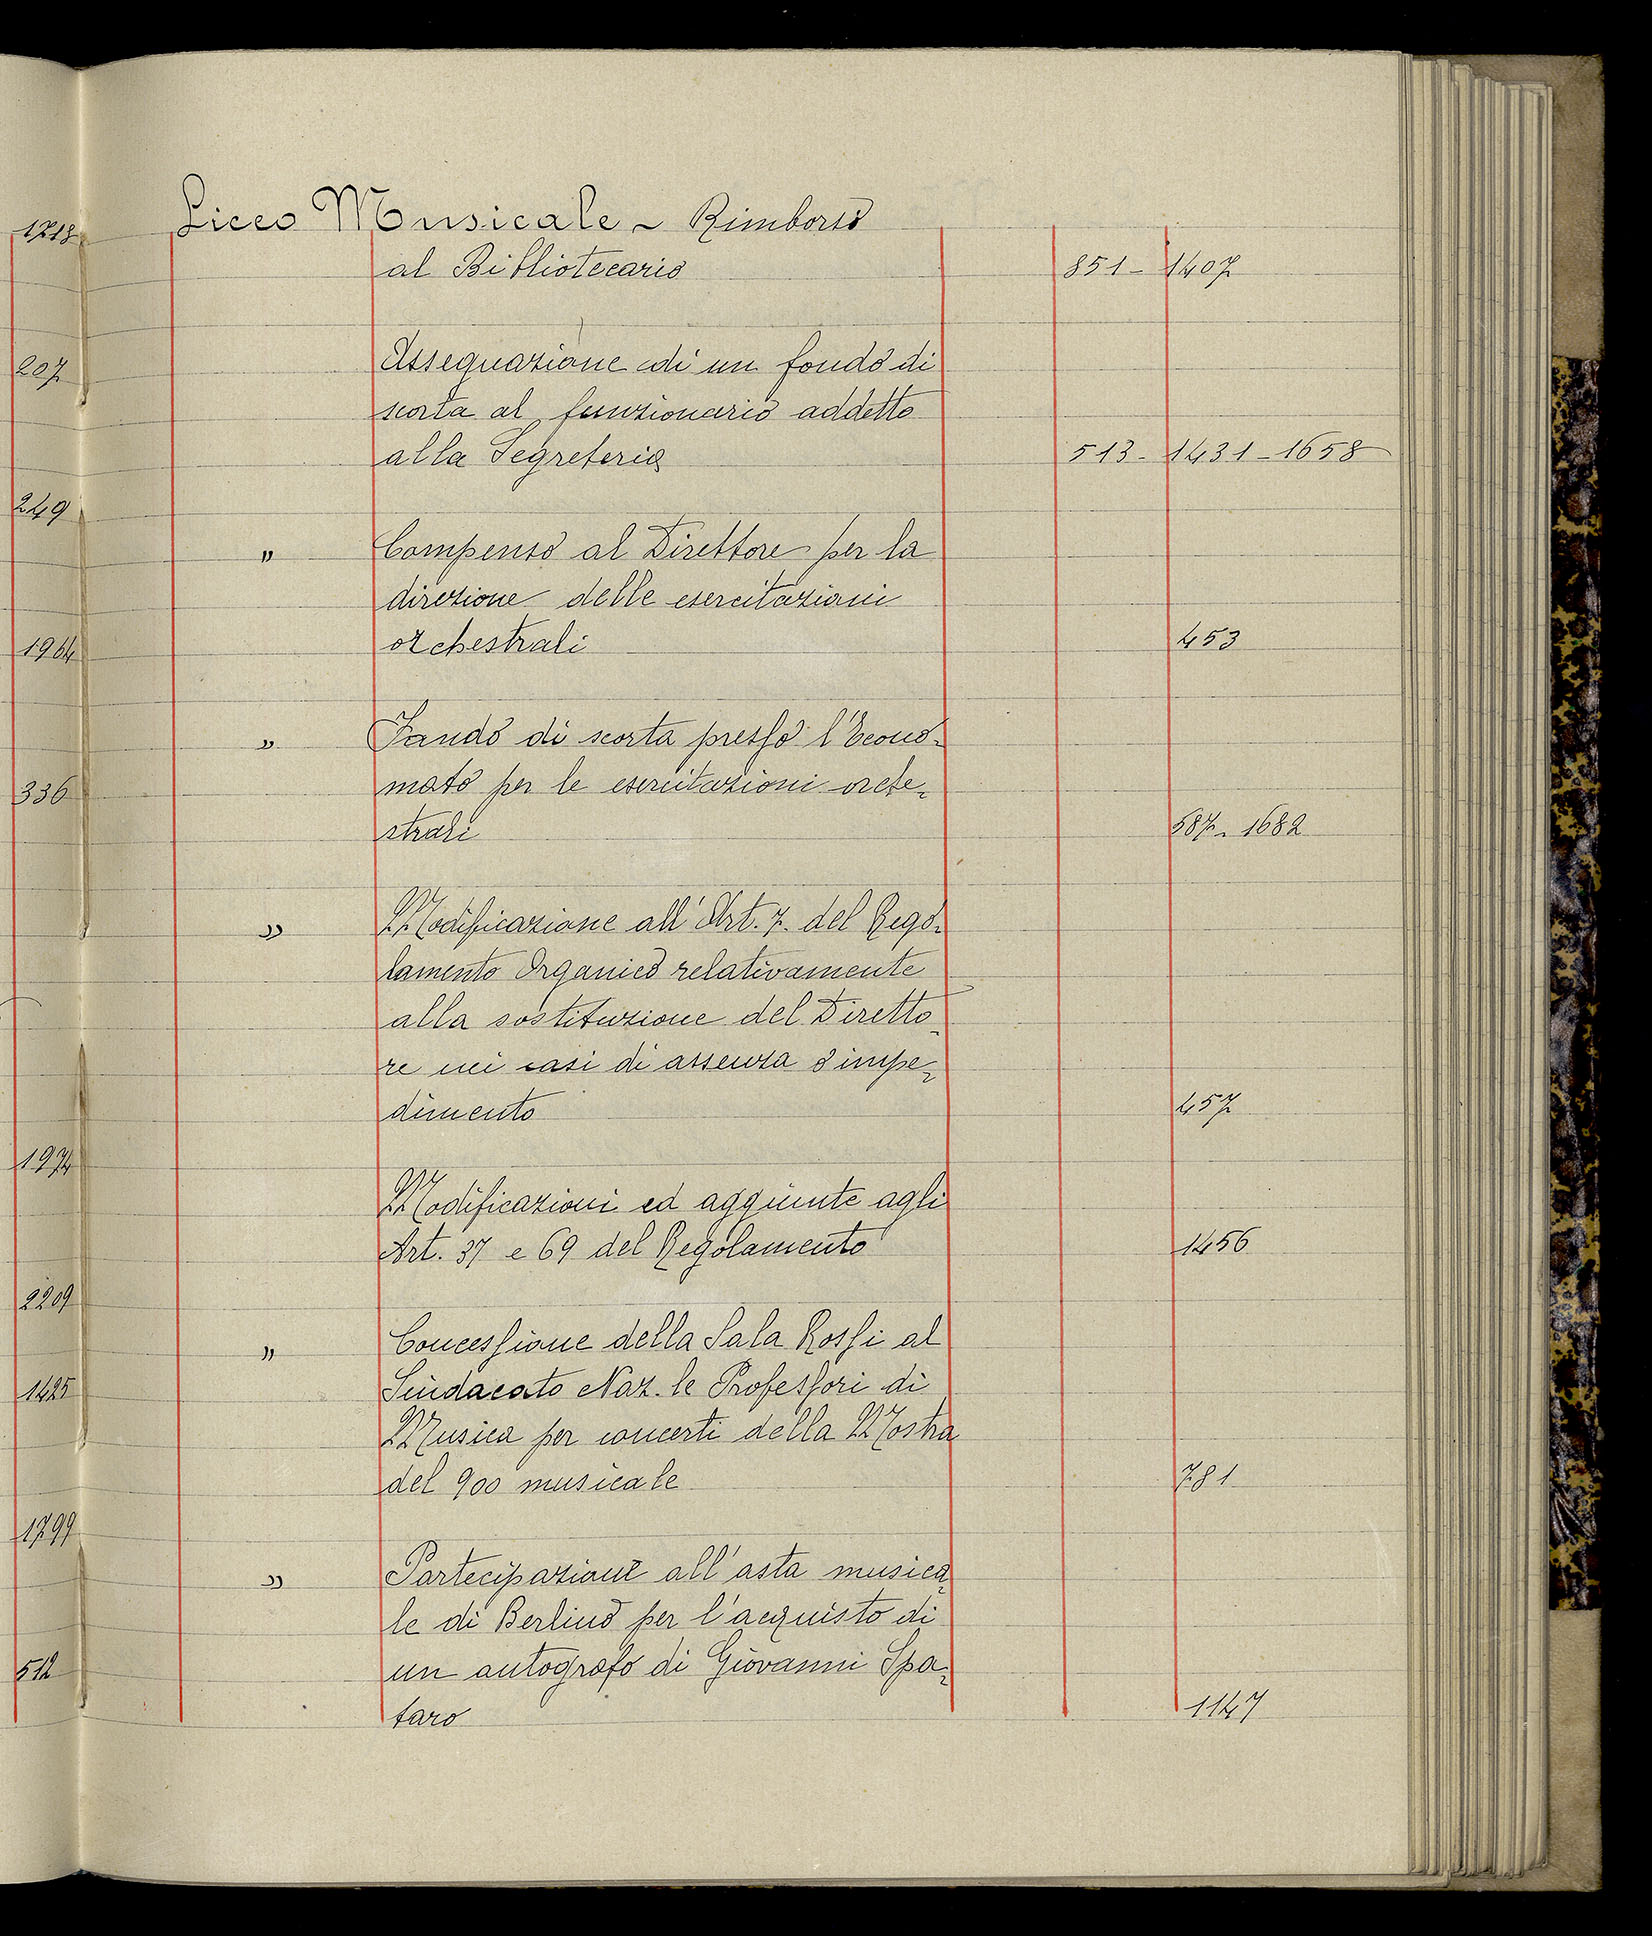 1718
207
249
1964
336
1974
2209
1425
1799
512
Liceo Musicale - Rimborso
al Bibliotecario 851 - 1407
Assegnazione di un fondo di
scorta al funzionario addetto
alla Segreteria 513 - 1431 - 1658
" Compenso al Direttore per la
direzione delle esercitazioni
orchestrali 453
" Fondo di scorta presso l'Econo-
mato per le esercitazioni orche-
strali 587 - 1682
" Modificazione all'Art. 7. del Rego-
lamento Organico relativamente
alla sostituzione del Diretto-
re nei casi di assenza o impe-
dimento 457
Modificazioni ed aggiunte agli
Art. 37 e 69 del Regolamento 1456
" Concessione della Sala Rossi al
Sindacato Naz.le Professori di
Musica per concerti della Mostra
del 900 musicale 781
" Partecipazione all'asta musica-
le di Berlino per l'acquisto di
un autografo di Giovanni Spa-
taro 1147